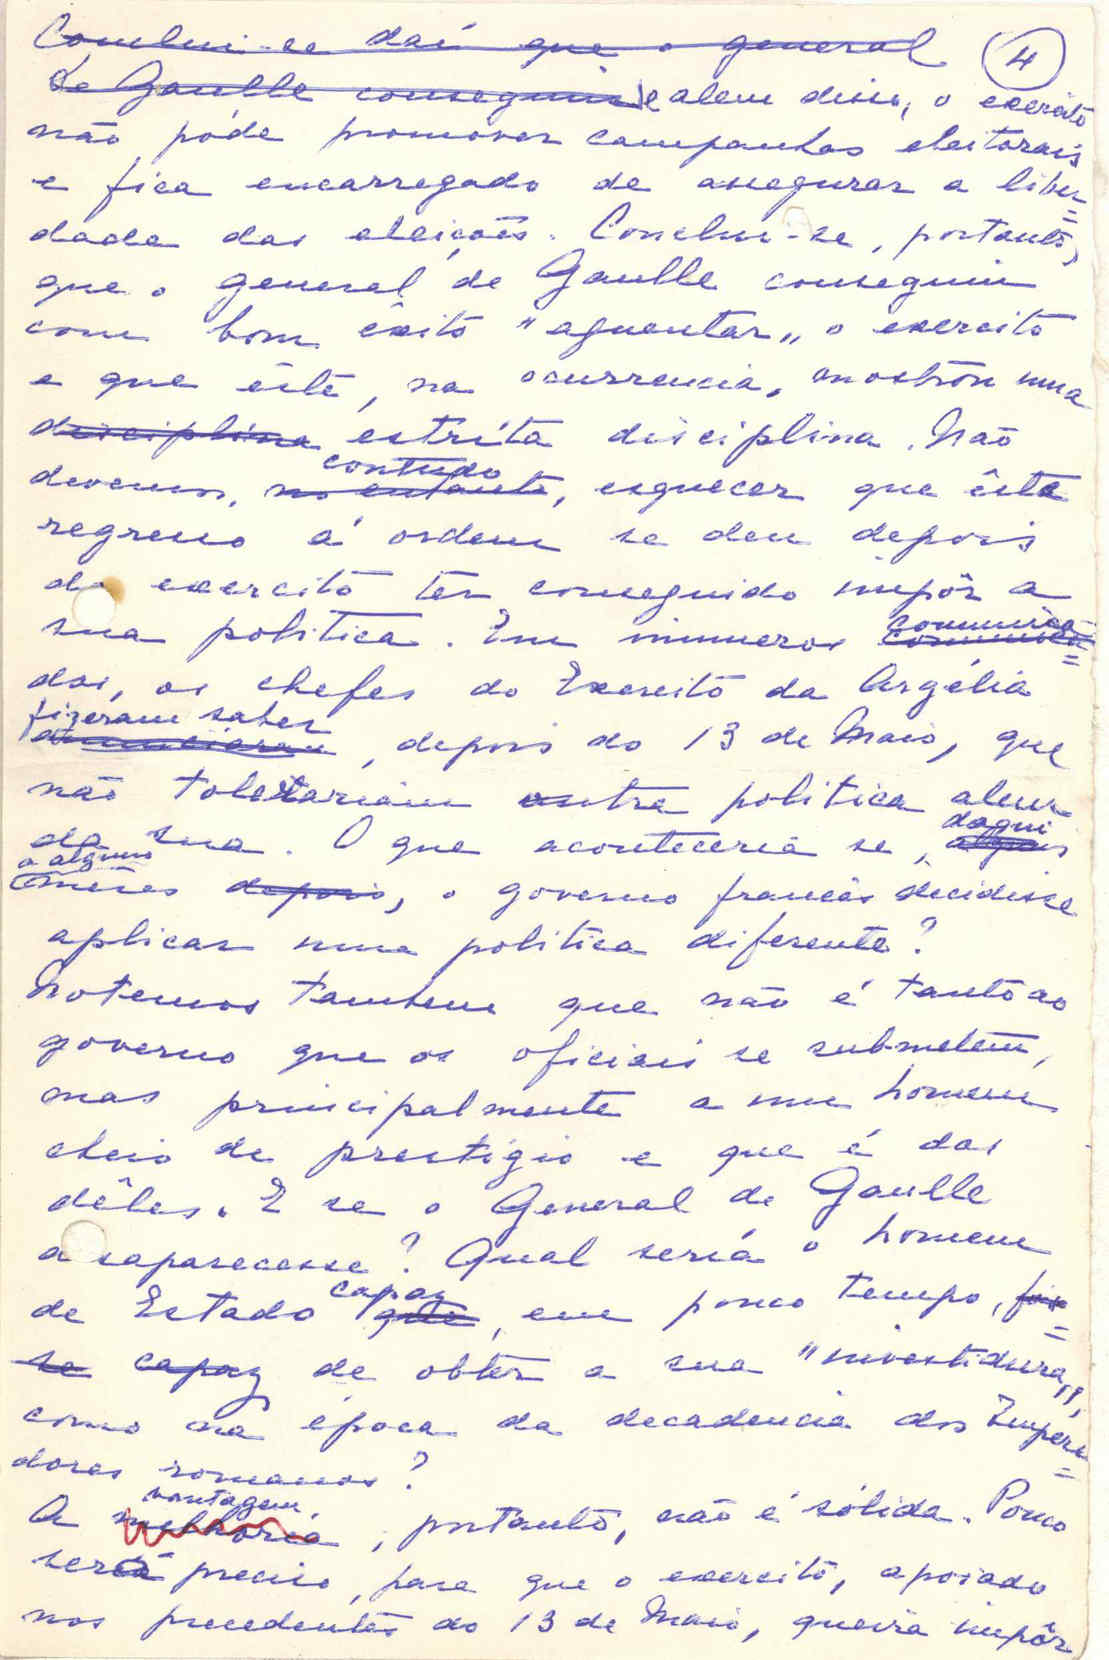 Conclui-se daí que o general
4
de Gaulle conseguiu e alem disso, o exercito
não póde promover campanhas eleitorais
e fica encarregado de assegurar a liber=
dade das eleições. Conclui-se, portanto,
que o general de Gaulle conseguiu
com bom êxito "aguentar" o exercito
e que êste, na ocurrencia, mostrou uma
disciplina estrita disciplina. Não
contudo
devemos, no entanto, esquecer que êste
regresso á ordem se deu depois
do exercito ter conseguido impôr a
sua politica. Em inumeros comunica=
dos, os chefes do Exercito da Argélia
fizeram saber
anunciaram, depois do 13 de Maio, que
não tolerariam outra politica alem
da sua. O que aconteceria se, daqui
alguns
a alguns
mêses depois, o governo francês decidisse
aplicar uma politica diferente?
Notemos tambem que não é tanto ao
governo que os oficiais se submetem,
mas principalmente a um homem
cheio de prestigio e que é dos
dêles. E se o General de Gaulle
desaparecesse? Qual seria o homem
capaz
de Estado que, em pouco tempo, fos=
se capaz de obter a sua "investidura",
como na época da decadencia dos Impera=
dores romanos?
vantagem
A melhoria, portanto, não é sólida. Pouco
será preciso, para que o exercito, apoiado
nos precedentes do 13 de Maio, queira impôr